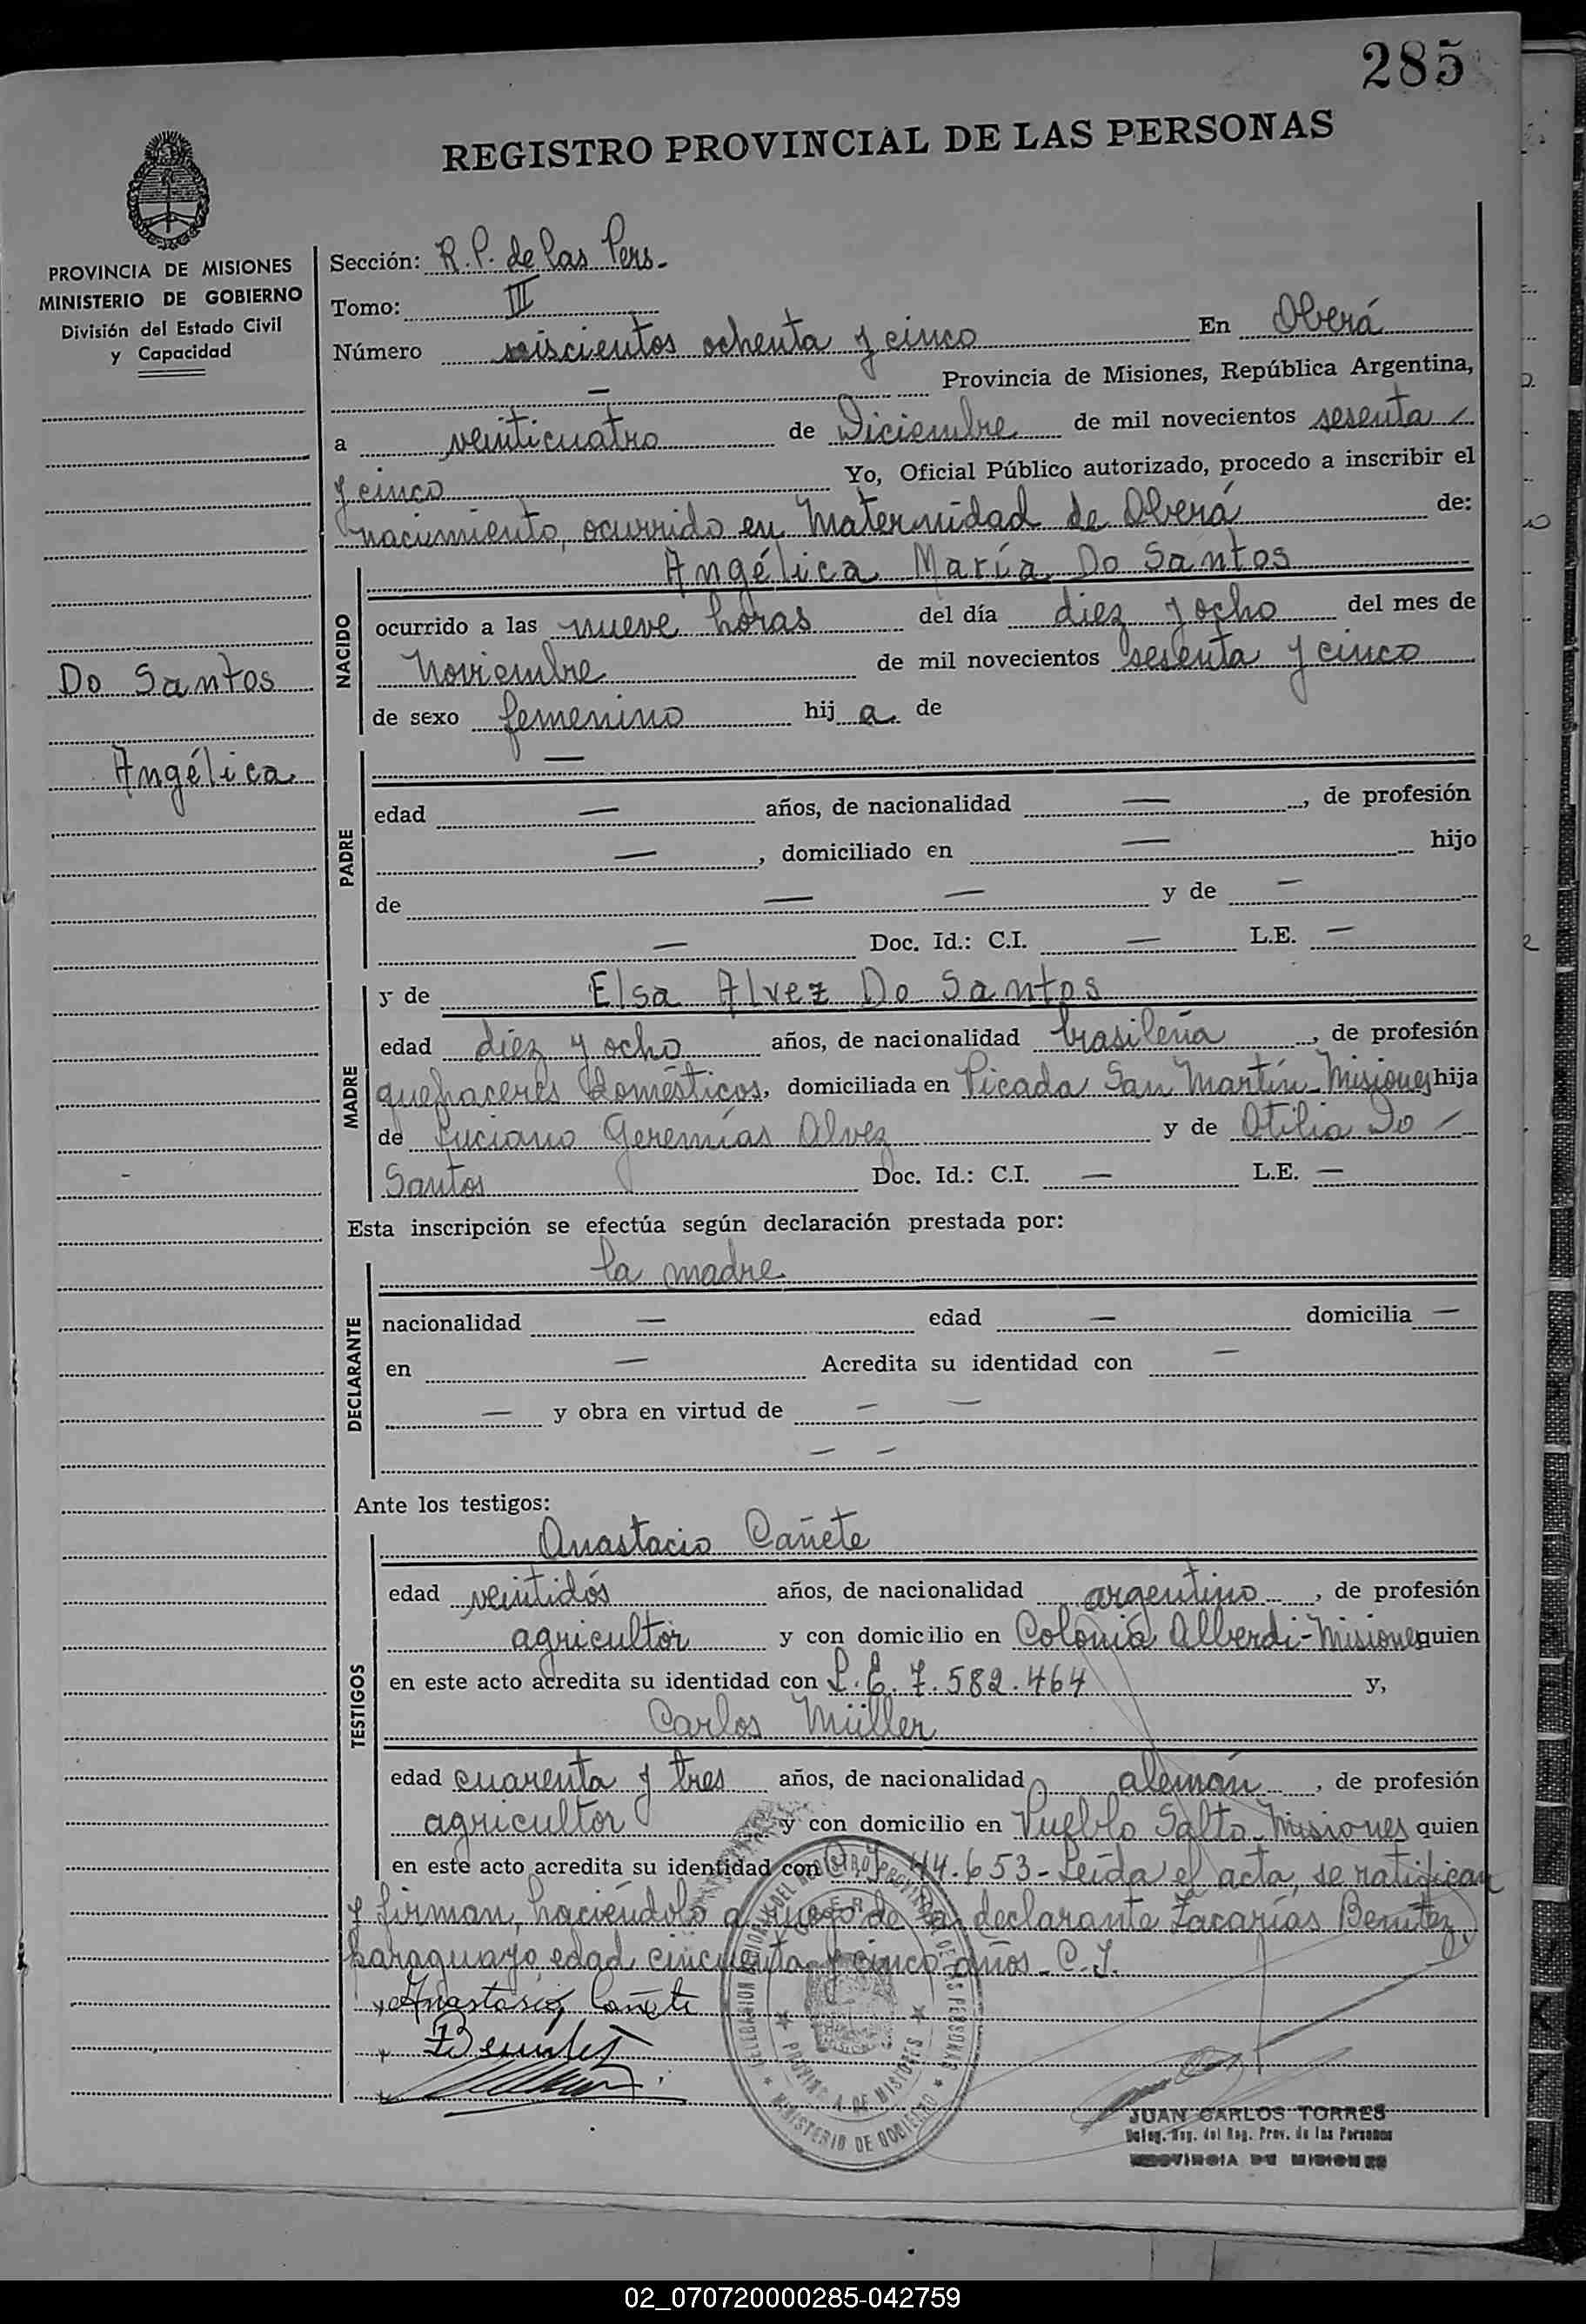 285
REGISTRO PROVINCIAL DE LAS PERSONAS
PROVINCIA DE MISIONES
MINISTERIO DE GOBIERNO
División del Estado Civil
y Capacidad
Do Santos
Angélica
Sección: R.P. de las Pers.
Tomo: III
Número seiscientos ochenta y cinco En Oberá
— Provincia de Misiones, República Argentina,
a veinticuatro de Diciembre de mil novecientos sesenta
y cinco Yo, Oficial Público autorizado, procedo a inscribir el
nacimiento, ocurrido en Maternidad de Oberá de:
NACIDO
Angélica María Do Santos
ocurrido a las nueve horas del día diez y ocho del mes de
Noviembre de mil novecientos sesenta y cinco
de sexo femenino hija de
PADRE
—
edad — años, de nacionalidad —, de profesión
—, domiciliado en — hijo
de — — y de —
— Doc. Id.: C.I. — L.E. —
MADRE
y de Elsa Alvez Do Santos
edad diez y ocho años, de nacionalidad brasileña, de profesión
quehaceres domésticos, domiciliada en Picada San Martín-Misiones hija
de Luciano Geremías Alvez y de Otilia Do
Santos Doc. Id.: C.I. — L.E. —
Esta inscripción se efectúa según declaración prestada por:
DECLARANTE
la madre
nacionalidad — edad — domicilia —
en — Acredita su identidad con —
— y obra en virtud de — —
— —
Ante los testigos:
TESTIGOS
Anastacio Cañete
edad veintidós años, de nacionalidad argentino, de profesión
agricultor y con domicilio en Colonia Alberdi-Misiones quien
en este acto acredita su identidad con L.E. 7.582.464 y,
Carlos Müller
edad cuarenta y tres años, de nacionalidad alemán, de profesión
agricultor y con domicilio en Pueblo Salto-Misiones quien
en este acto acredita su identidad con 44.653-Leída el acta, se ratifican
y firman, haciéndolo a ruego de la declarante Zacarías Benitez
paraguayo, edad cincuenta y cinco años. C.I.
Anastasio Cañete
Benitez
PROVINCIA DE MISIONES
MINISTERIO DE GOBIERNO
JUAN CARLOS TORRES
Deleg. Reg. del Reg. Prov. de las Personas
PROVINCIA DE MISIONES
02_070720000285-042759